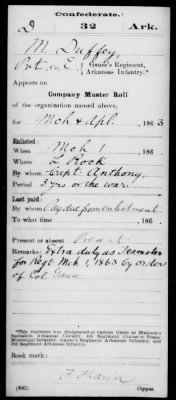 Confederate.
D 32 Ark.
M. Duffey,
Pvt. Co. E, Gause's Regiment,
Arkansas Infantry.*
Appears on
Company Muster Roll
of the organization named above,
for Mch & Apl, 1863
Enlisted:
When Mch 1, 186
Where L Rock
By whom Capt. Anthony,
Period 3 yrs or the war.
Last paid:
By whom Pay due from enlistment
To what time , 186
Present or absent Present
Remarks: Extra duty as Teamster
for Regt. Mch 1, 1863 by order
of Col. Gause
*This regiment was designated at various times as
Arkansas Cavalry, 4th Regiment
Gause's Regiment Arkansas Infantry, and
32d Regiment Arkansas Infantry.
Book mark:
(642) Copyist.